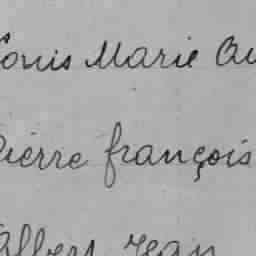 Louis Marie Au
Pierre françois
Albert Jean